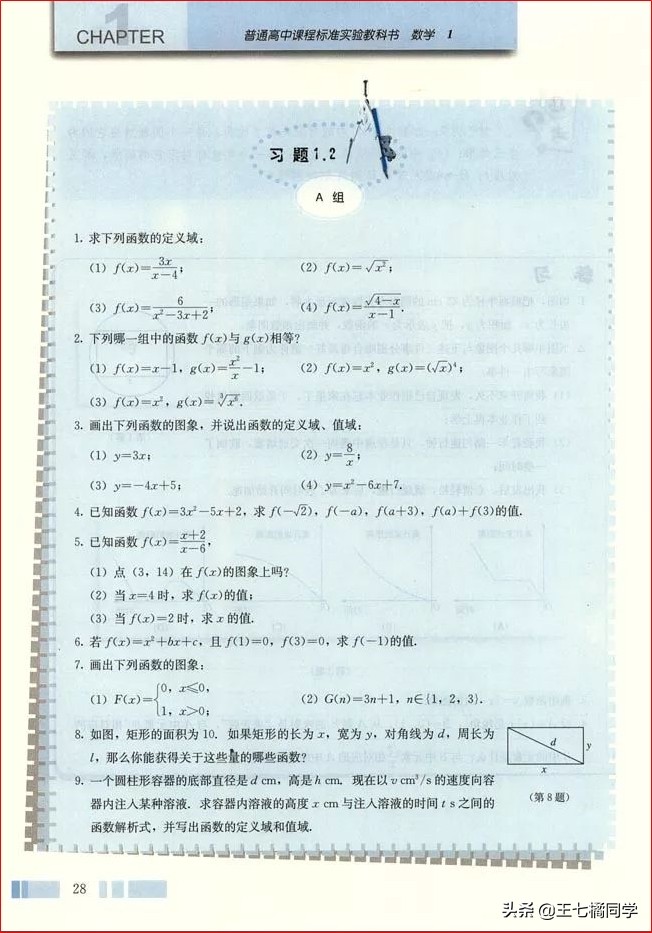 1
CHAPTER
普通高中课程标准实验教科书 数学 1
习 题 1.2
A 组
1. 求下列函数的定义域:
(1) f(x)=3x/(x-4);    (2) f(x)=√(x²);
(3) f(x)=6/(x²-3x+2);    (4) f(x)=√(4-x)/(x-1).
2. 下列哪一组中的函数 f(x)与 g(x)相等?
(1) f(x)=x-1, g(x)=x²/x-1;    (2) f(x)=x², g(x)=(√x)⁴;
(3) f(x)=x², g(x)=∛(x⁶).
3. 画出下列函数的图象, 并说出函数的定义域、值域:
(1) y=3x;    (2) y=8/x;
(3) y=-4x+5;    (4) y=x²-6x+7.
4. 已知函数 f(x)=3x²-5x+2, 求 f(-√2), f(-a), f(a+3), f(a)+f(3)的值.
5. 已知函数 f(x)=(x+2)/(x-6),
(1) 点 (3, 14) 在 f(x)的图象上吗?
(2) 当 x=4 时, 求 f(x)的值;
(3) 当 f(x)=2 时, 求 x 的值.
6. 若 f(x)=x²+bx+c, 且 f(1)=0, f(3)=0, 求 f(-1)的值.
7. 画出下列函数的图象:
(1) F(x)={0, x≤0, 1, x>0;    (2) G(n)=3n+1, n∈{1, 2, 3}.
8. 如图, 矩形的面积为 10. 如果矩形的长为 x, 宽为 y, 对角线为 d, 周长为
l, 那么你能获得关于这些量的哪些函数?
d
y
x
(第 8 题)
9. 一个圆柱形容器的底部直径是 d cm, 高是 h cm. 现在以 v cm³/s 的速度向容
器内注入某种溶液. 求容器内溶液的高度 x cm 与注入溶液的时间 t s 之间的
函数解析式, 并写出函数的定义域和值域.
28
头条 @王七橘同学